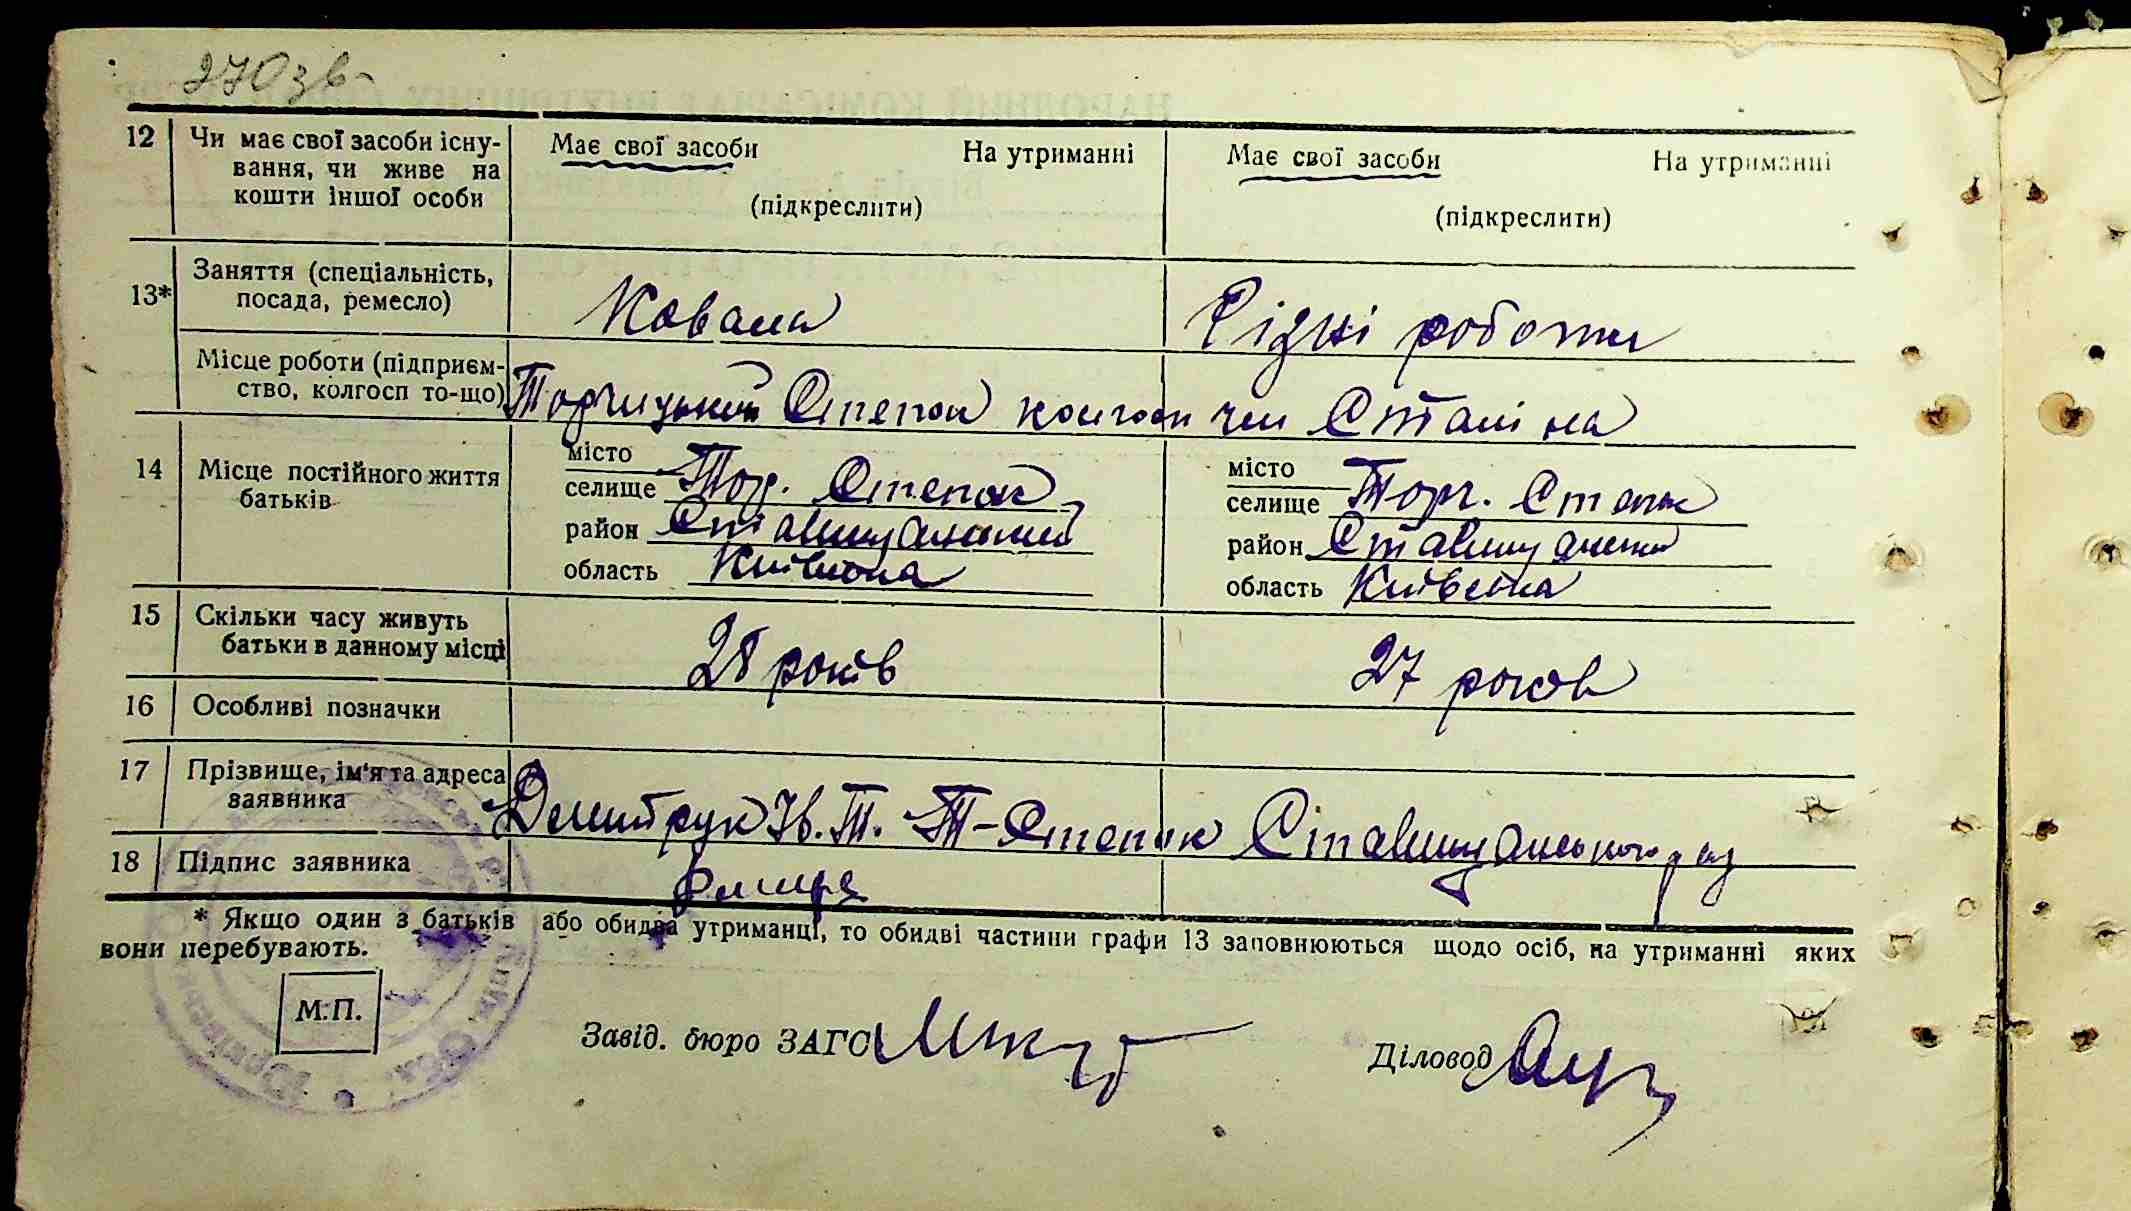 270зв
12 Чи має свої засоби існу- Має свої засоби На утриманні Має свої засоби На утриманні
вання, чи живе на
кошти іншої особи (підкреслити) (підкреслити)
13* Заняття (спеціальність,
посада, ремесло) Коваля Різні роботи
Місце роботи (підприєм-
ство, колгосп то-що) Торчицький Степок колгосп Сталіна
14 Місце постійного життя
батьків
місто місто
селище Тор. Степок селище Торч. Степок
район Ставищанський район Ставищанський
область Київська область Київська
15 Скільки часу живуть
батьки в данному місці 28 років 27 років
16 Особливі позначки
17 Прізвище, ім'я та адреса
заявника Дмитрук Ів. Т. Т-Степок Ставищанського р
18 Підпис заявника
* Якщо один з батьків або обидва утриманці, то обидві частини графи 13 заповнюються щодо осіб, на утриманні яких
вони перебувають.
М.П.
Завід. бюро ЗАГС Діловод